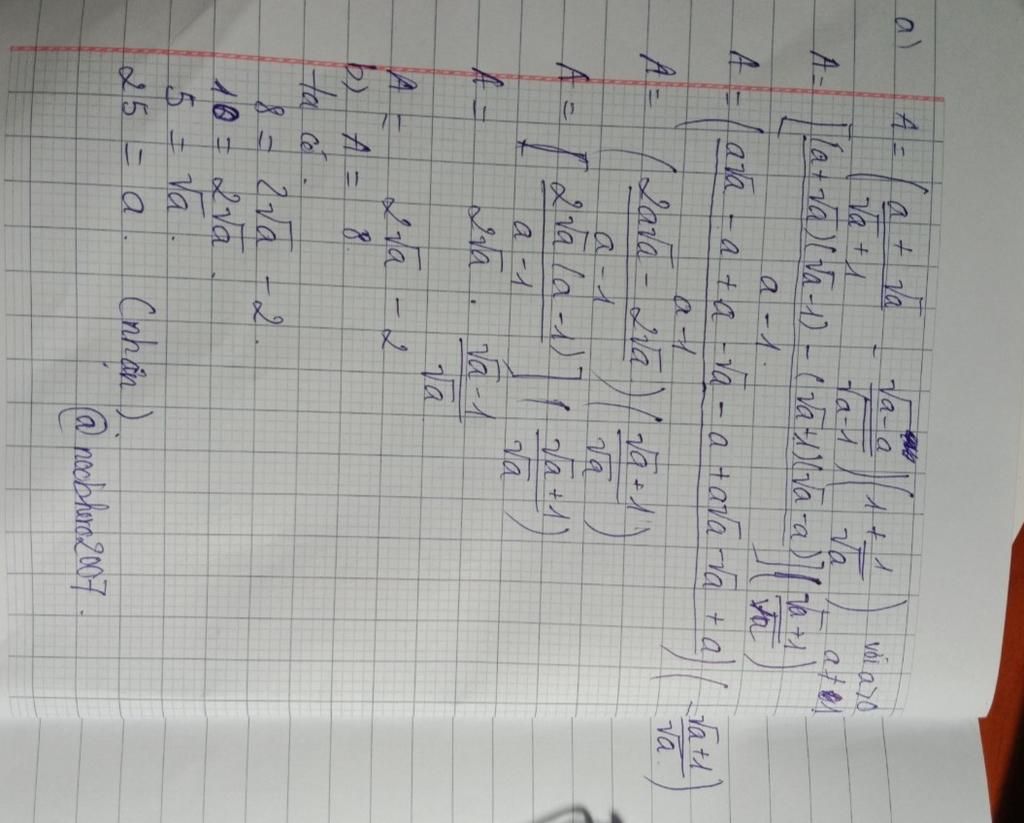 a) A = ( (a + √a)/(√a + 1) - (√a - a)/(√a - 1) ) ( 1 + 1/√a ) với a>0 a≠1
A = [ ((a + √a)(√a - 1) - (√a + 1)(√a - a))/(a - 1) ] ( (√a + 1)/√a )
A = ( (a√a - a + a - √a - a + a√a - √a + a)/(a - 1) ) ( (√a + 1)/√a )
A = ( (2a√a - 2√a)/(a - 1) ) ( (√a + 1)/√a )
A = [ (2√a (a - 1))/(a - 1) ] ( (√a + 1)/√a )
A = 2√a . (√a - 1)/√a
A = 2√a - 2
b) A = 8.
Ta có:
8 = 2√a - 2.
10 = 2√a.
5 = √a.
25 = a. (nhận).
@noobhero2007.